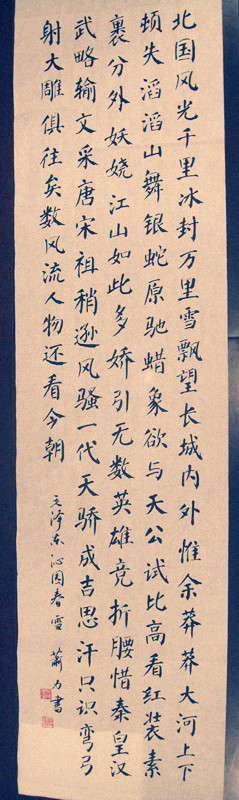 北国风光千里冰封万里雪飘望长城内外惟余莽莽大河上下
顿失滔滔山舞银蛇原驰蜡象欲与天公试比高看红装素
裹分外妖娆江山如此多娇引无数英雄竞折腰惜秦皇汉
武略输文采唐宋祖稍逊风骚一代天骄成吉思汗只识弯弓
射大雕俱往矣数风流人物还看今朝
毛泽东沁园春雪 萧力書